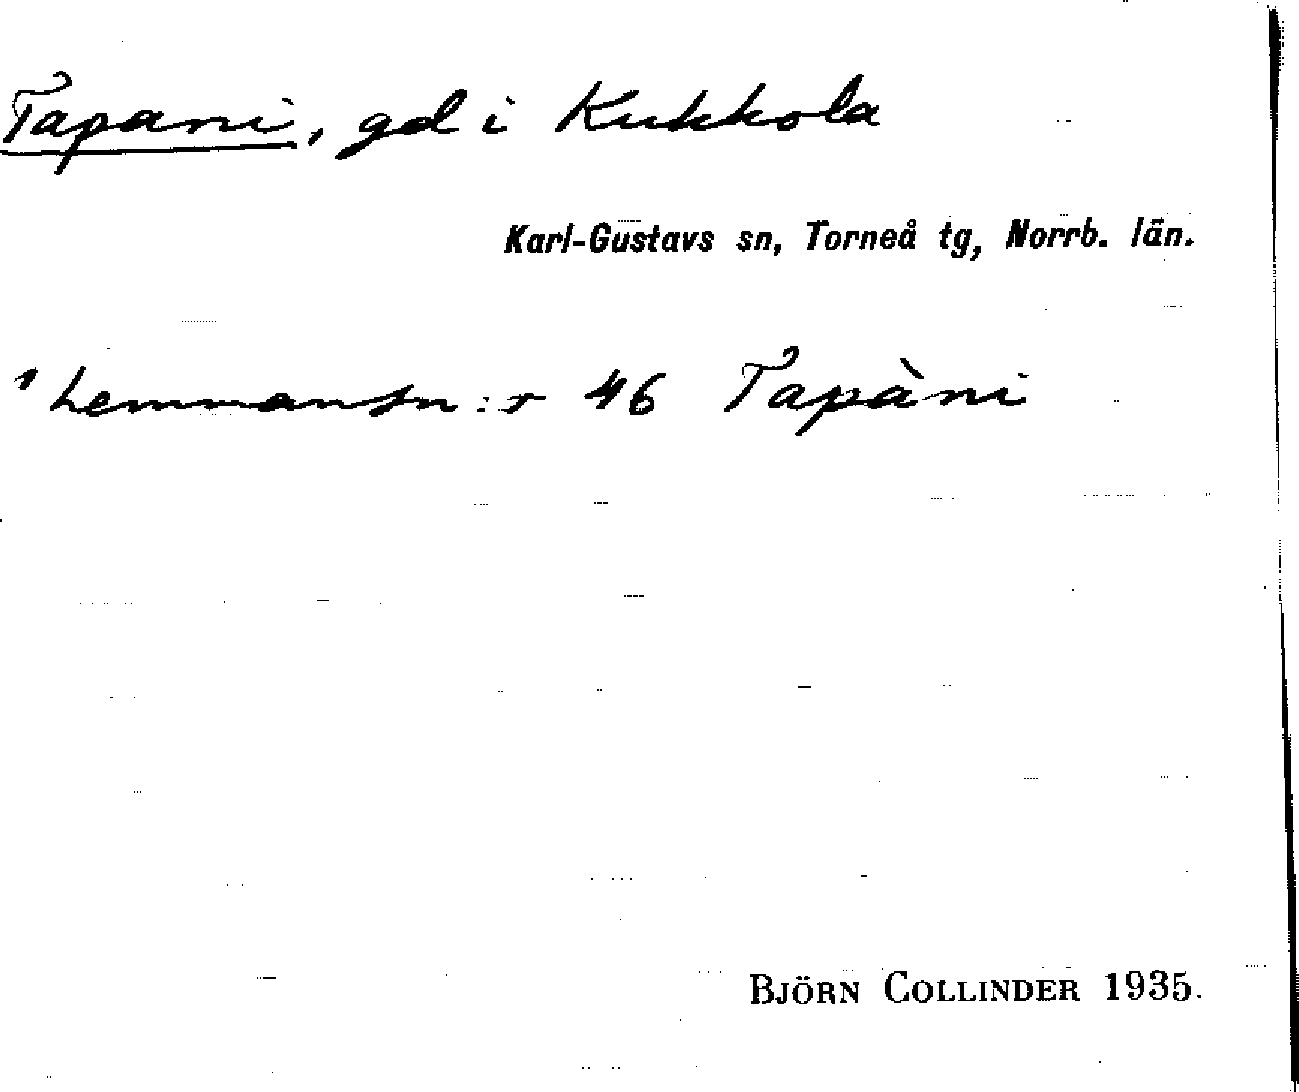 Tapani, gd i Kukkola
Karl-Gustavs sn, Torneå tg, Norrb. län.
1 hemmansn:r 46 Tapàni
BJÖRN COLLINDER 1935.